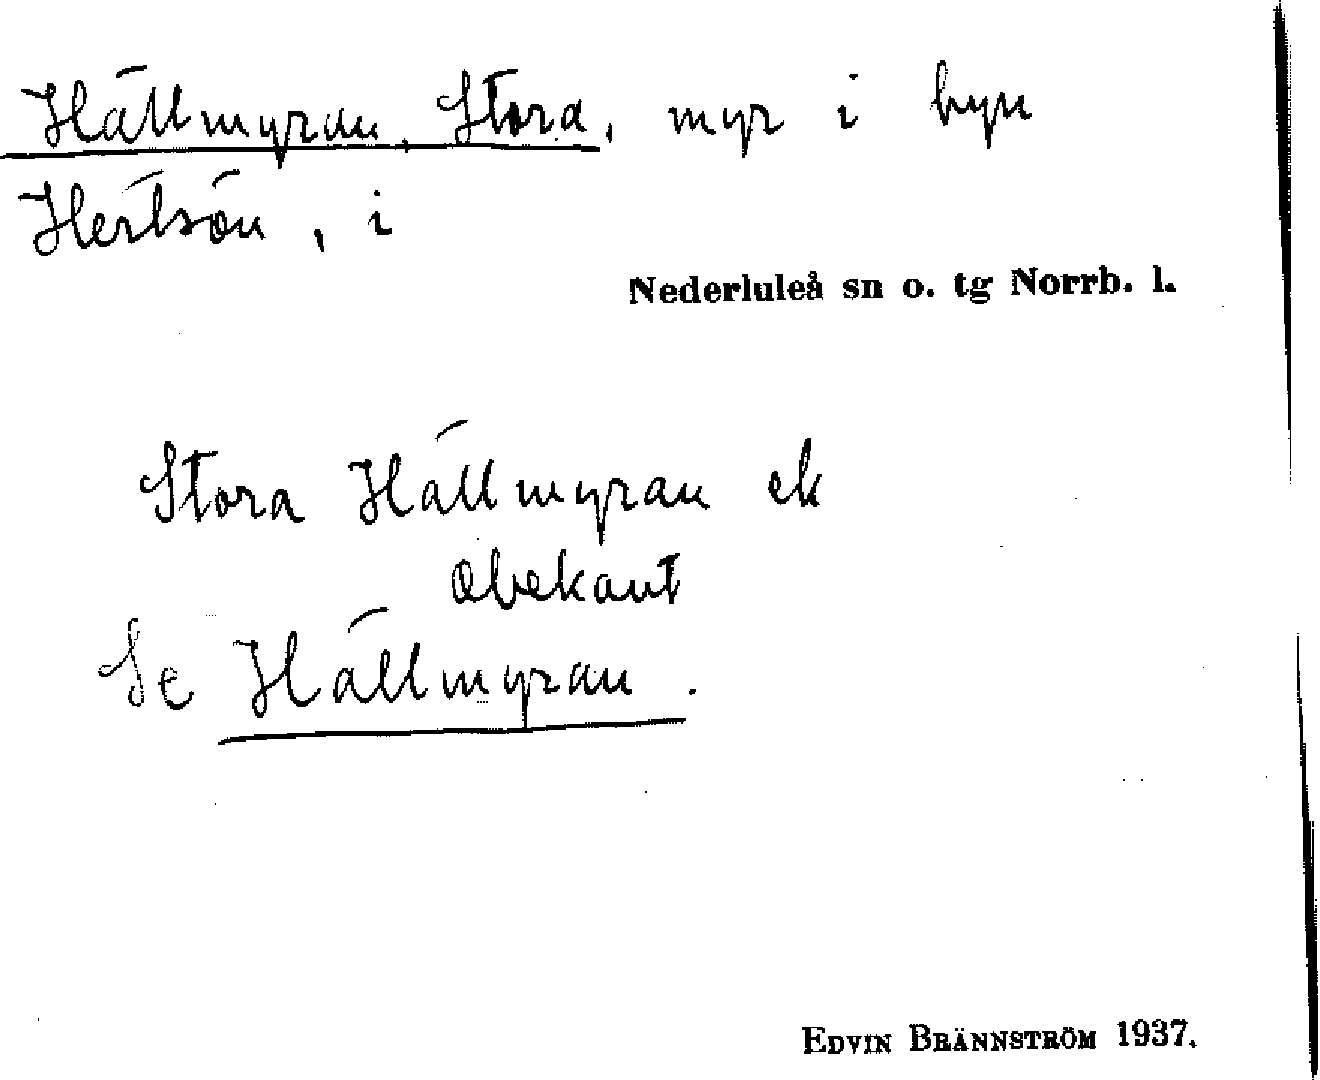 Hällmyran, Stora, myr i byn
Hertsön, i
Nederluleå sn o. tg Norrb. l.
Stora Hällmyran ek
Obekant
Se Hällmyran.
EDVIN BRÄNNSTRÖM 1937.